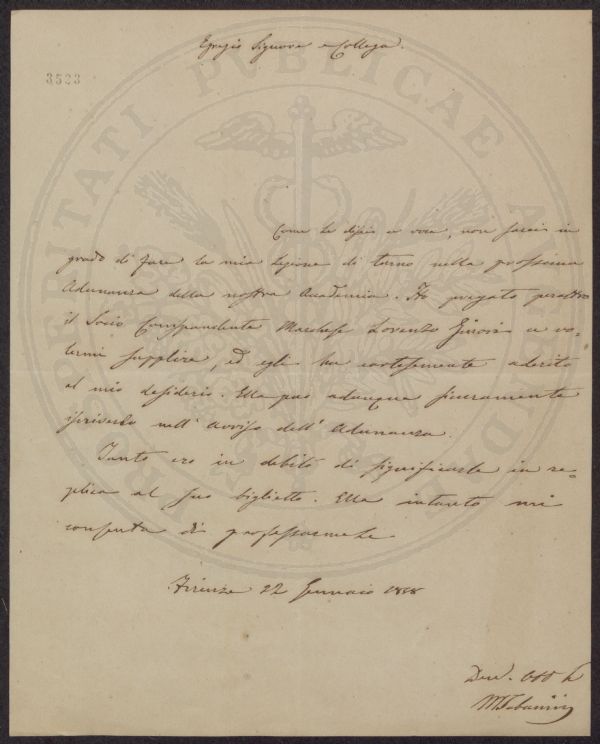 Egregio Signore e Collega.
3523
PROSPERITATI PVBLICAE AVGENDAE
Come le dissi a voce, non sarei in
grado di fare la mia lezione di turno nella prossima
Adunanza della nostra Accademia. Ho pregato peraltro
il Socio Corrispondente Marchese Lorenzo a vo-
lermi supplire, ed egli ha cortesemente aderito
al mio desiderio. Ella può adunque sicuramente
iscriverlo nell' avviso dell' Adunanza.
Tanto ero in debito di significarle in re-
plica al suo biglietto. Ella intanto mi
consenta di professarmele
Firenze 22 Gennaio